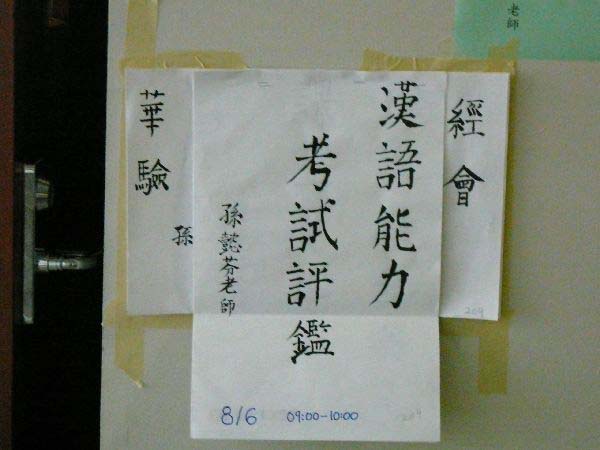 漢語能力
考試評鑑
孫懿芬老師
8/6 09:00-10:00
209
經
會
209
華
驗
孫
老師